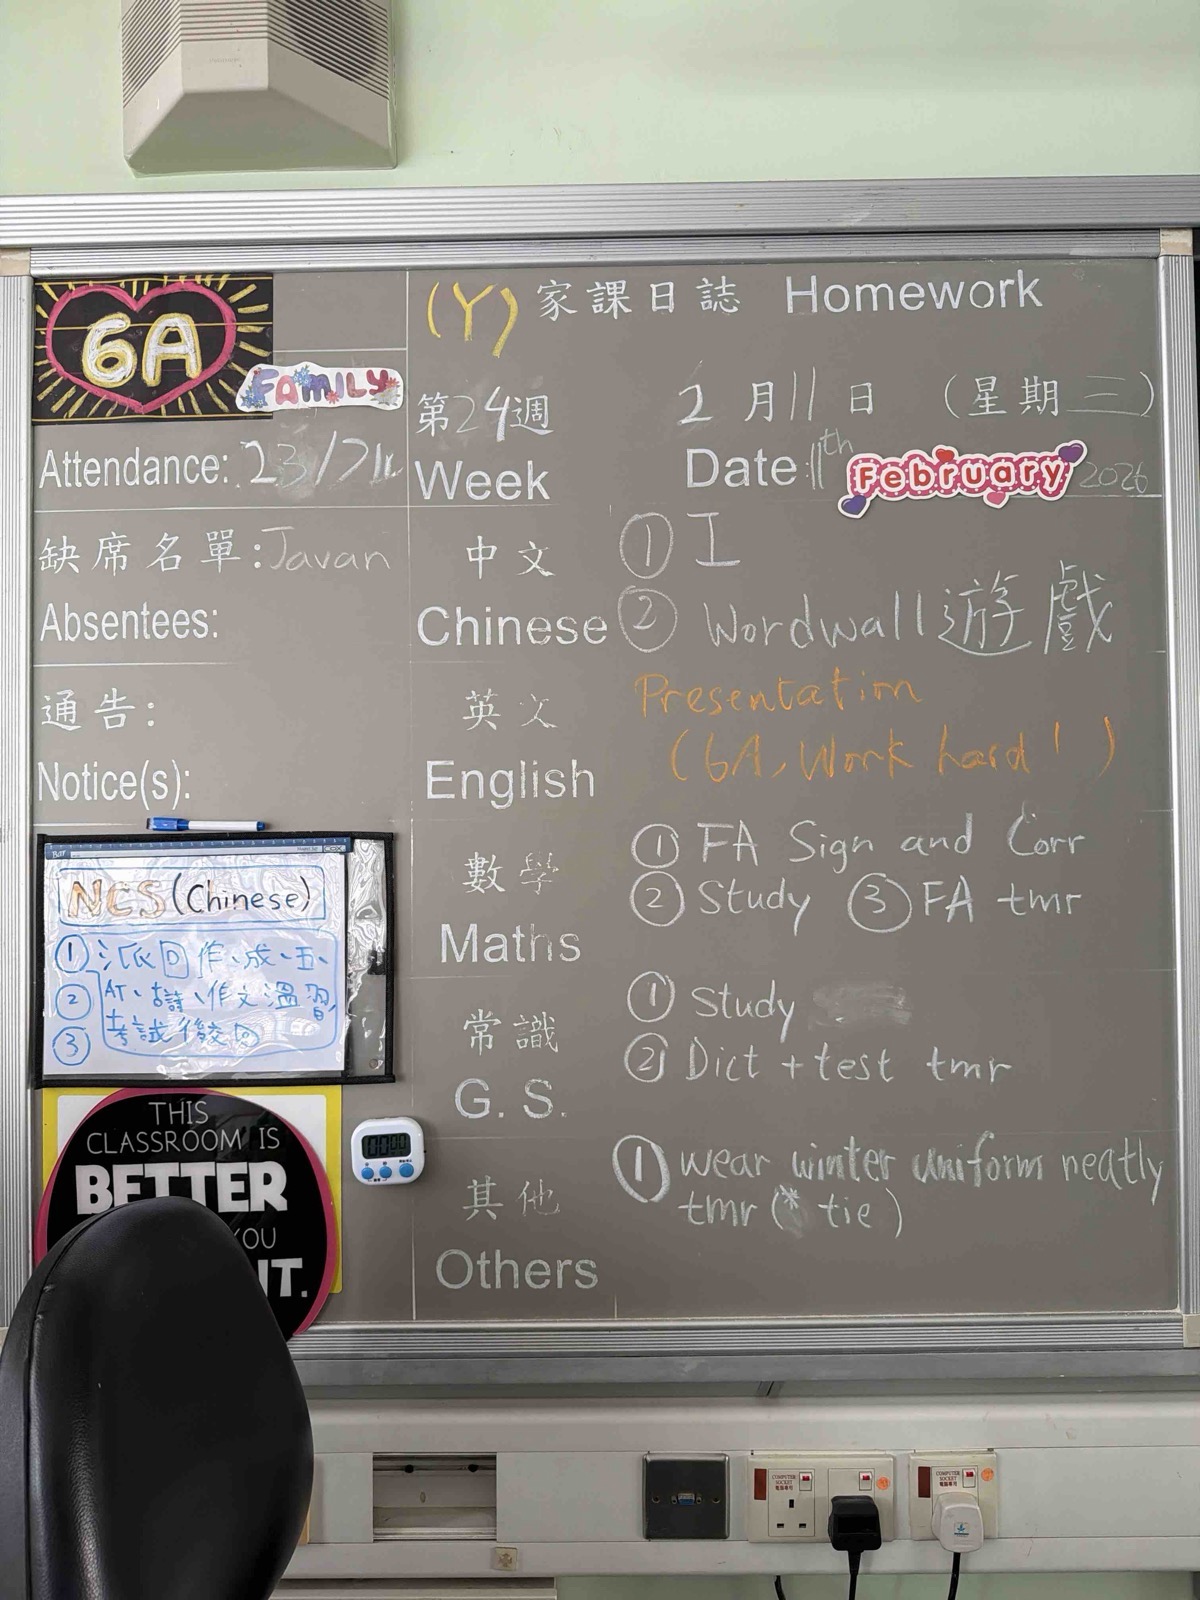 6A
FAMILY
Attendance: 23/24
缺席名單: Javan
Absentees:
通告:
Notice(s):
NCS (Chinese)
① 派回作、成、五、
② AT、古詩、作文溫習,
③ 考試後交回
THIS
CLASSROOM IS
BETTER
YOU
IT.
(Y) 家課日誌 Homework
第24週 2月11日 (星期三)
Week Date 11th February 2026
中文 ① 工
Chinese ② Wordwall 遊戲
英文 Presentation
English (6A, Work hard!)
數學 ① FA Sign and Corr
② Study ③ FA tmr
Maths
常識 ① Study
② Dict + test tmr
G. S.
其他 ① wear winter uniform neatly
tmr (* tie)
Others
COMPUTER
SOCKET
電腦專用
COMPUTER
SOCKET
電腦專用